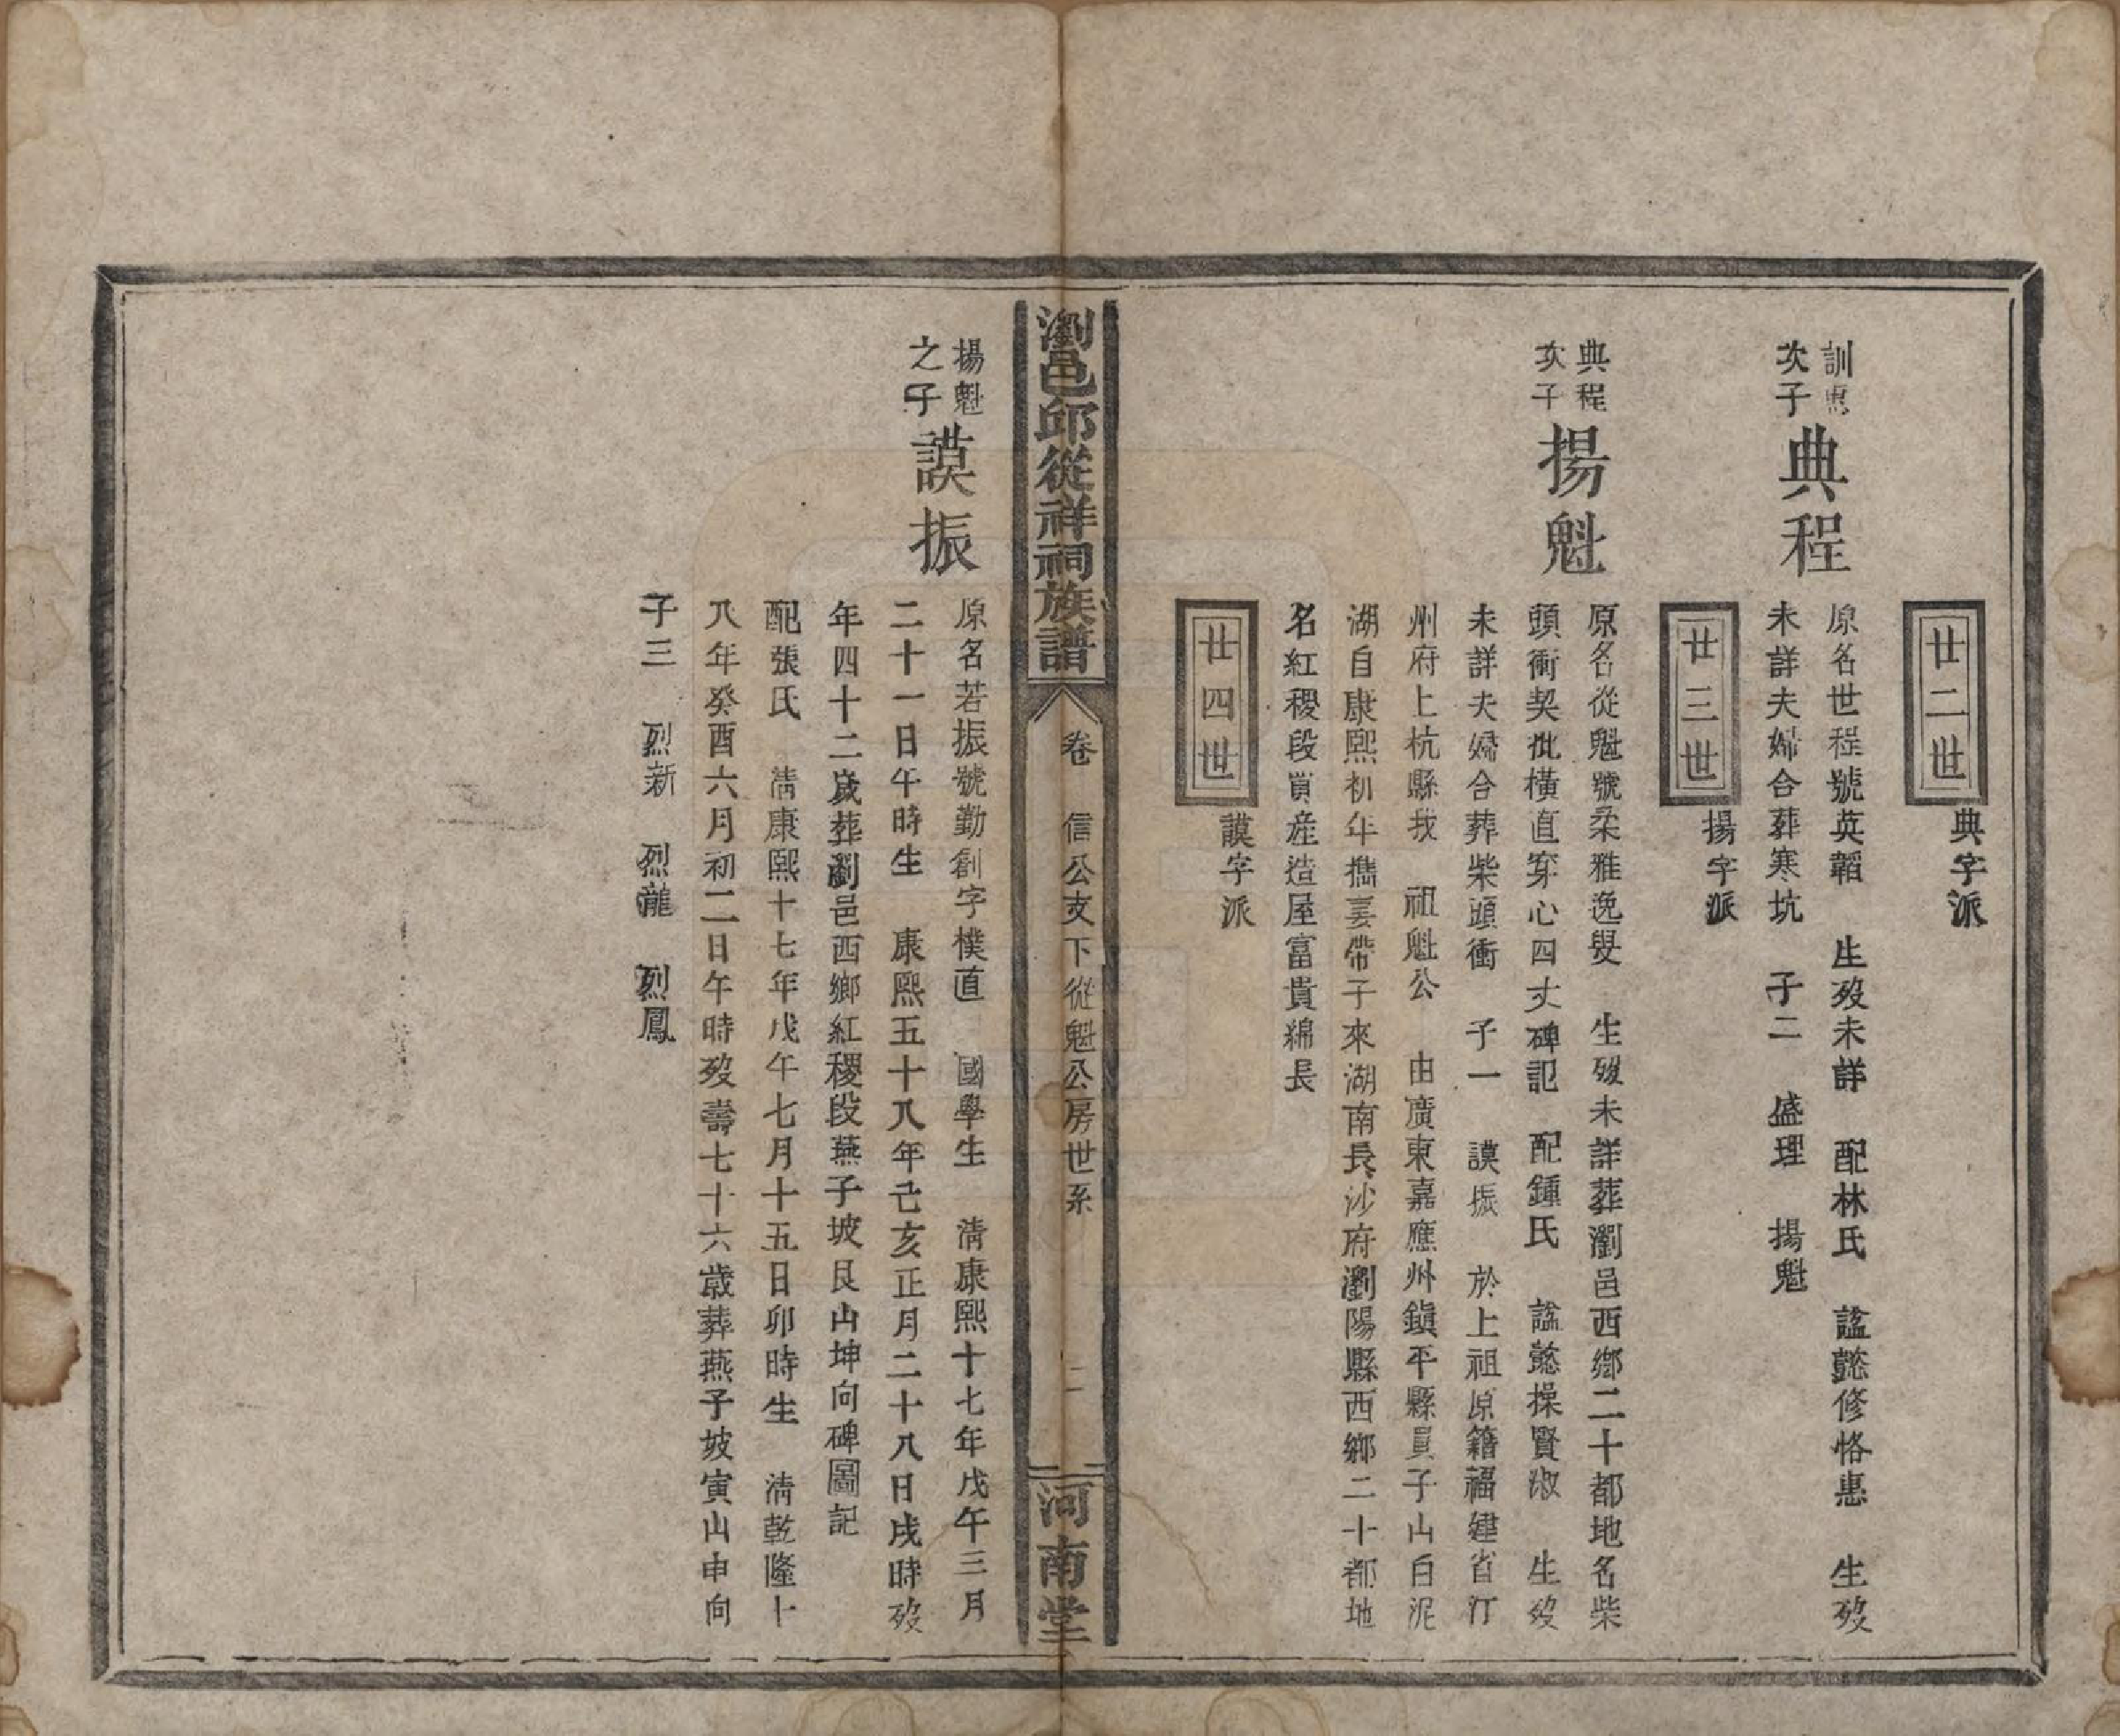 廿二世
典字派
訓惠
次子
典程
原名世程號英韜　生歿未詳　配林氏　諡懿修恪惠　生歿
未詳夫婦合葬寒坑　子二　盛理　揚魁
廿三世
揚字派
典程
次子
揚魁
原名從魁號柔雅逸叟　生歿未詳葬瀏邑西鄉二十都地名柴
頭衝契批橫直穿心四丈碑記　配鍾氏　諡懿操賢淑　生歿
未詳夫婦合葬柴頭衝　子一　謨振　於上祖原籍福建省汀
州府上杭縣我　祖魁公　由廣東嘉應州鎮平縣員子山白泥
湖自康熙初年攜妻帶子來湖南長沙府瀏陽縣西鄉二十都地
名紅稷段買産造屋富貴綿長
廿四世
謨字派
瀏邑邱從祥祠族譜
卷
信公支下從魁公房世系
二
河南堂
揚魁
之子
謨振
原名若振號勤創字樸直　國學生　淸康熙十七年戊午三月
二十一日午時生　康熙五十八年己亥正月二十八日戌時歿
年四十二歲葬瀏邑西鄉紅稷段燕子坡艮山坤向碑圖記
配張氏　淸康熙十七年戊午七月十五日卯時生　淸乾隆十
八年癸酉六月初二日午時歿壽七十六歲葬燕子坡寅山申向
子三　烈新　烈龍　烈鳳